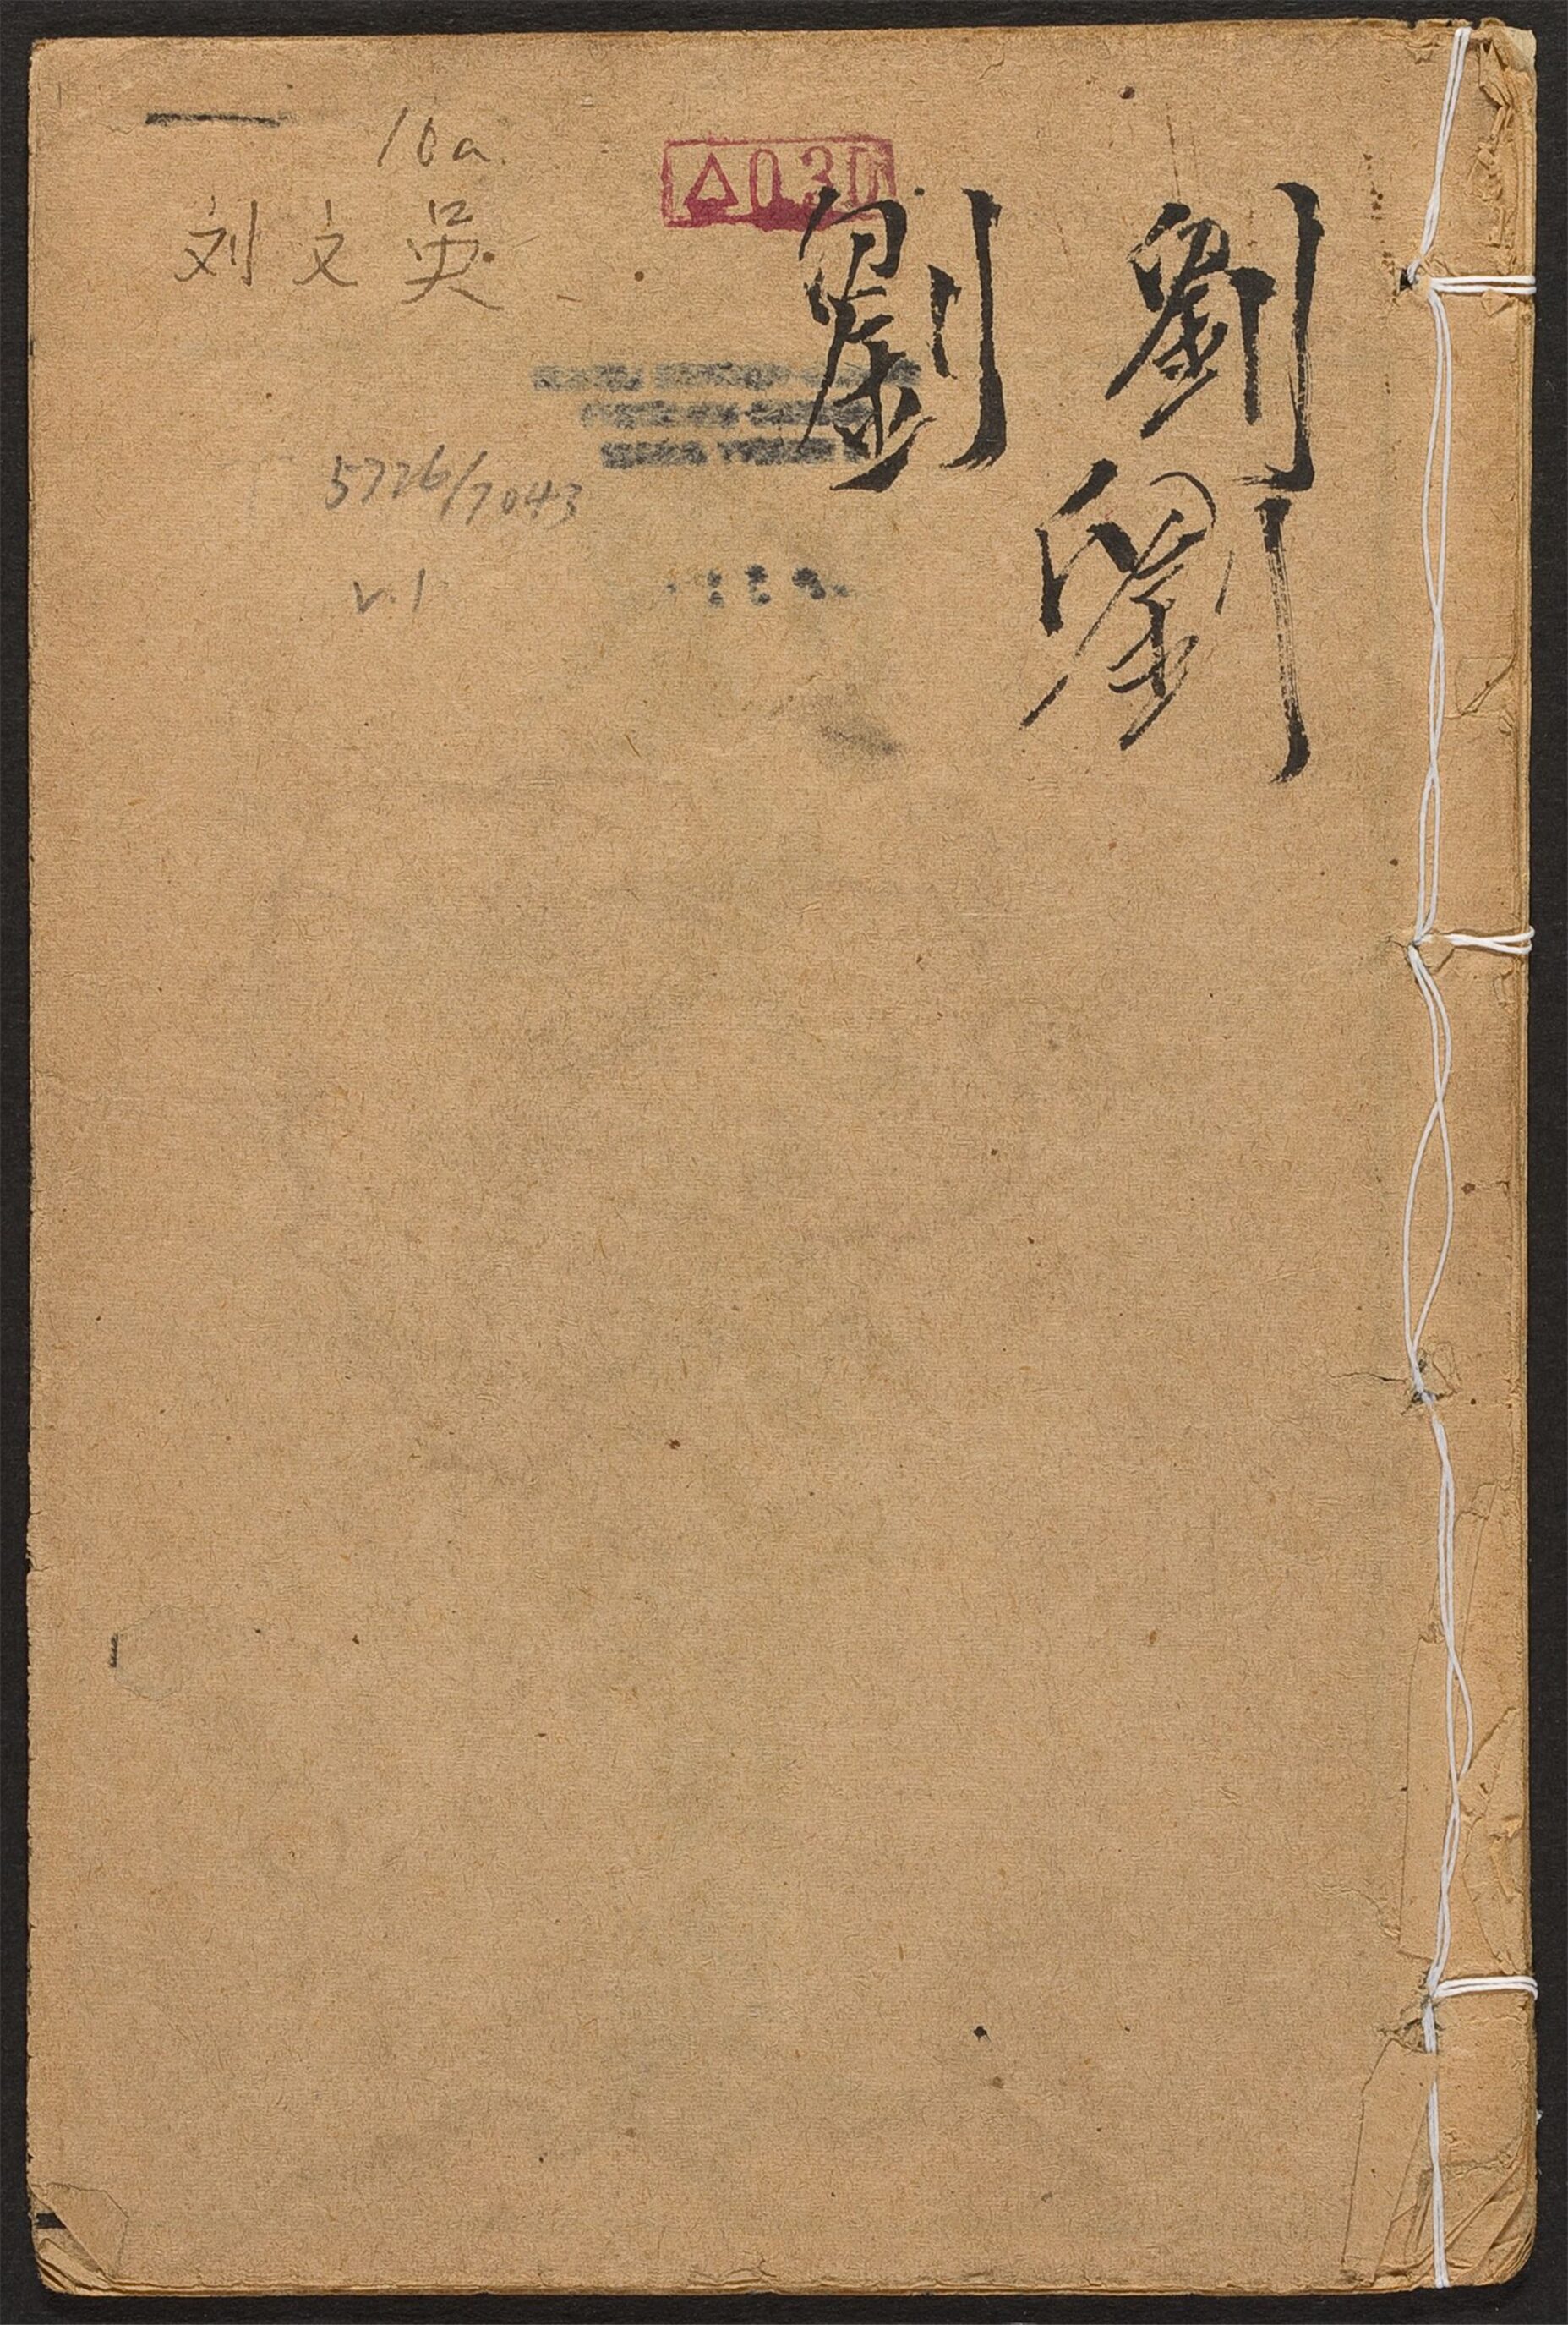 10a
刘文吳
△030
劉
劉
劉
5726/7043
v.1